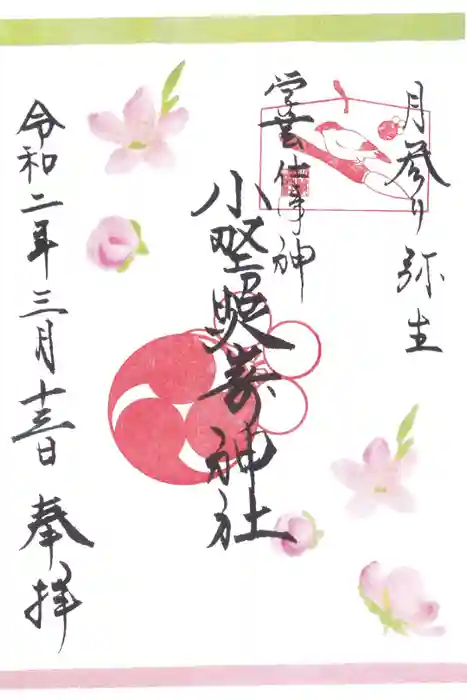 月参り 弥生
学芸 仕事神
小野照嵜神社
令和二年三月十三日 奉拝